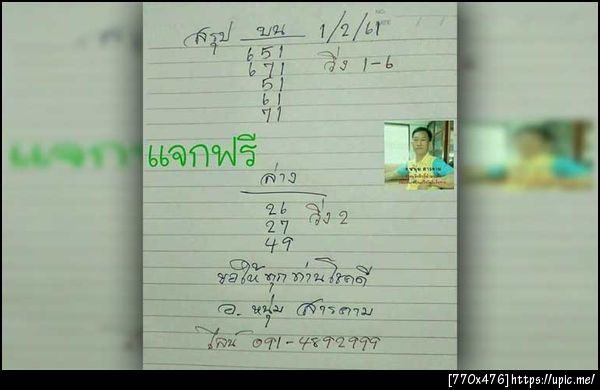 สรุป บน 1/2/61
651
671 วิ่ง 1-6
51
61
71
แจกฟรี
ล่าง
26
27 วิ่ง 2
49
ขอให้ทุกท่านโชคดี
อ. หนุ่ม สารคาม
ไลน์ 091-4892999
[770x476]https://upic.me/